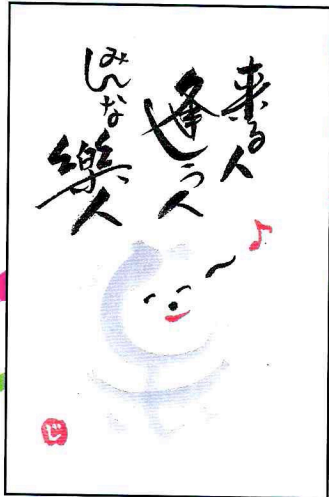 来る人
逢う人
みんな
樂人
じ